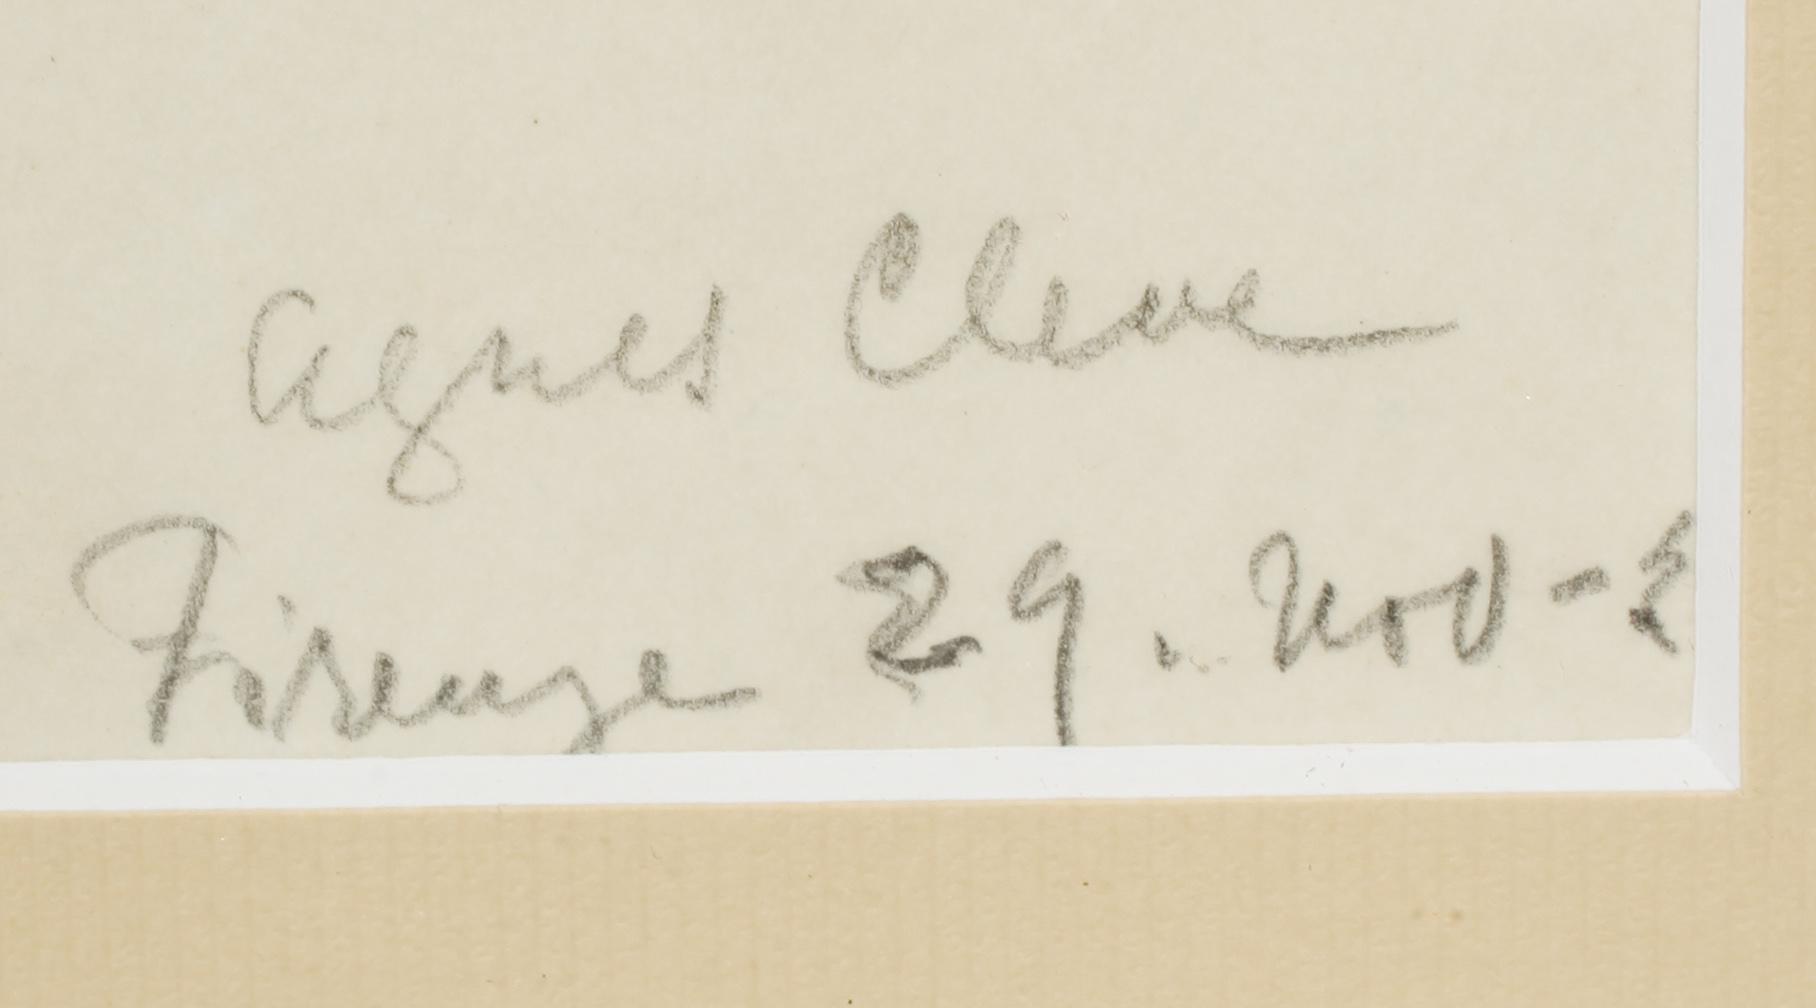 Agnes Cleve
Firenze 29. Nov - 2